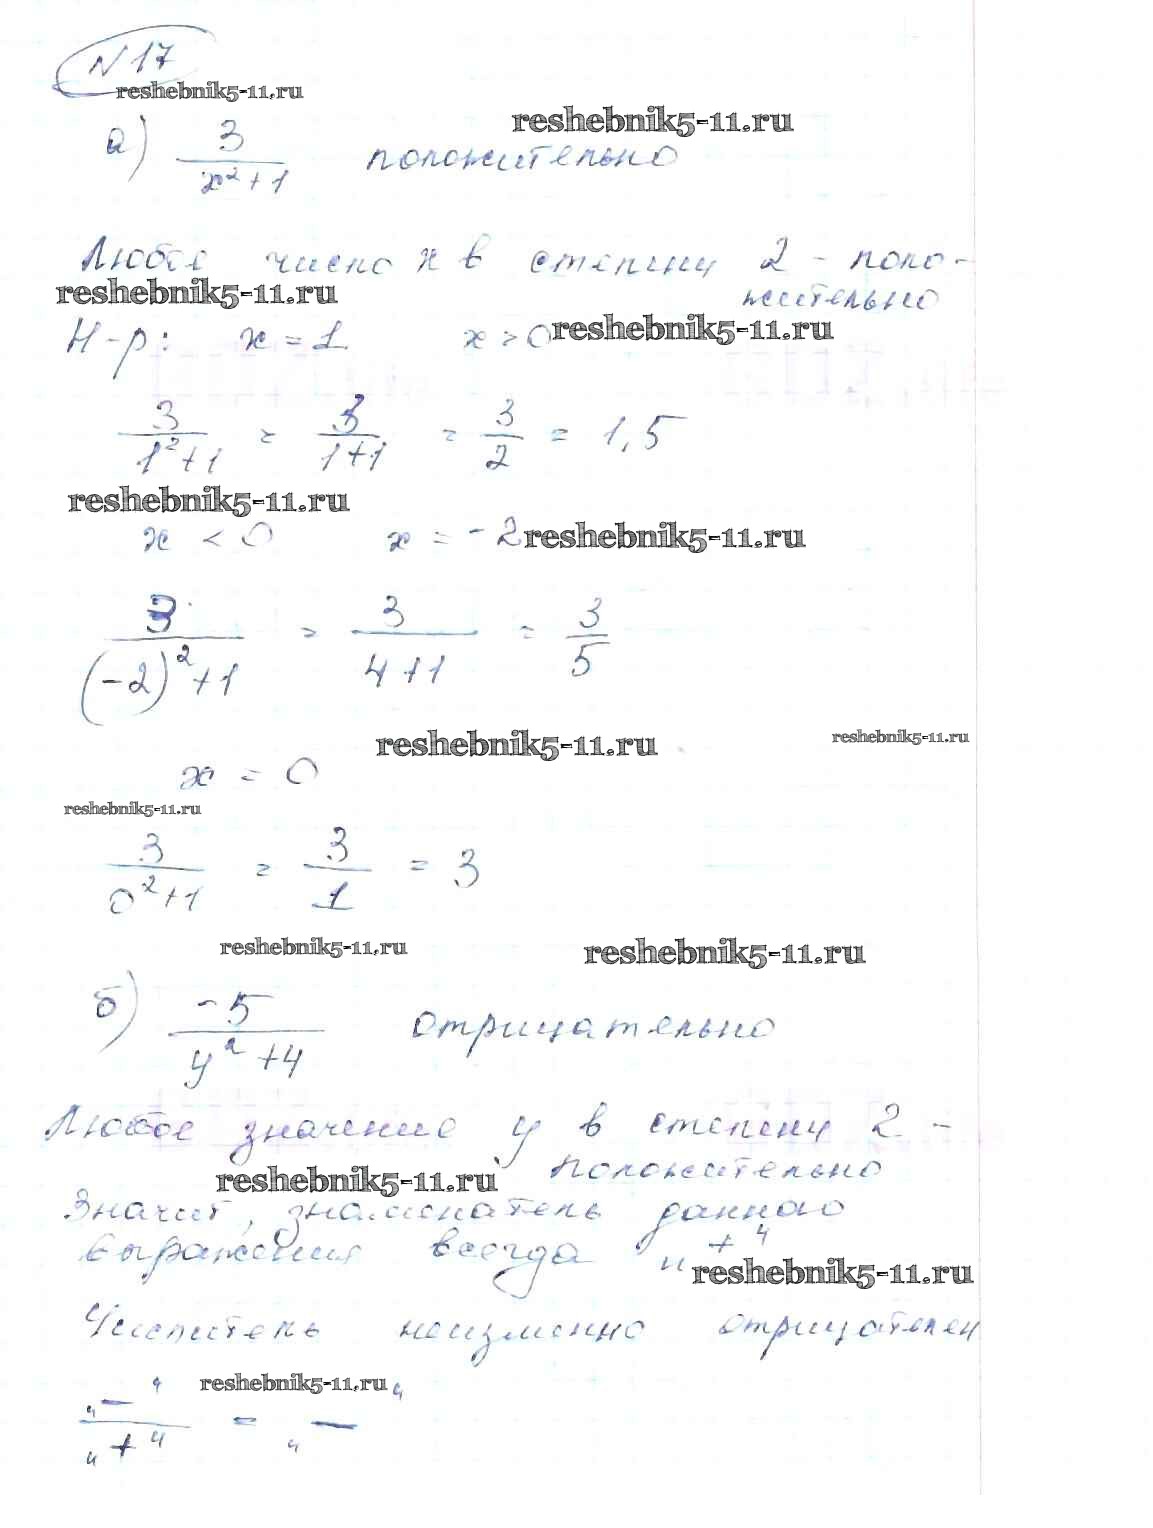 N 17
reshebnik5-11.ru
reshebnik5-11.ru
а) 3/(x²+1) положительно
Любое число x в степени 2 - поло-
жительно
reshebnik5-11.ru
Н-р: x = 1 x > 0
reshebnik5-11.ru
3/(1²+1) = 3/(1+1) = 3/2 = 1,5
reshebnik5-11.ru
x < 0 x = -2
reshebnik5-11.ru
3/((-2)²+1) = 3/(4+1) = 3/5
reshebnik5-11.ru
reshebnik5-11.ru
x = 0
reshebnik5-11.ru
3/(0²+1) = 3/1 = 3
reshebnik5-11.ru
reshebnik5-11.ru
б) -5/(y²+4) отрицательно
Любое значение y в степени 2 -
положительно
reshebnik5-11.ru
Значит, знаменатель данного
выражения всегда "+"
reshebnik5-11.ru
Числитель неизменно отрицателен
reshebnik5-11.ru
"-"/"+" = "-"